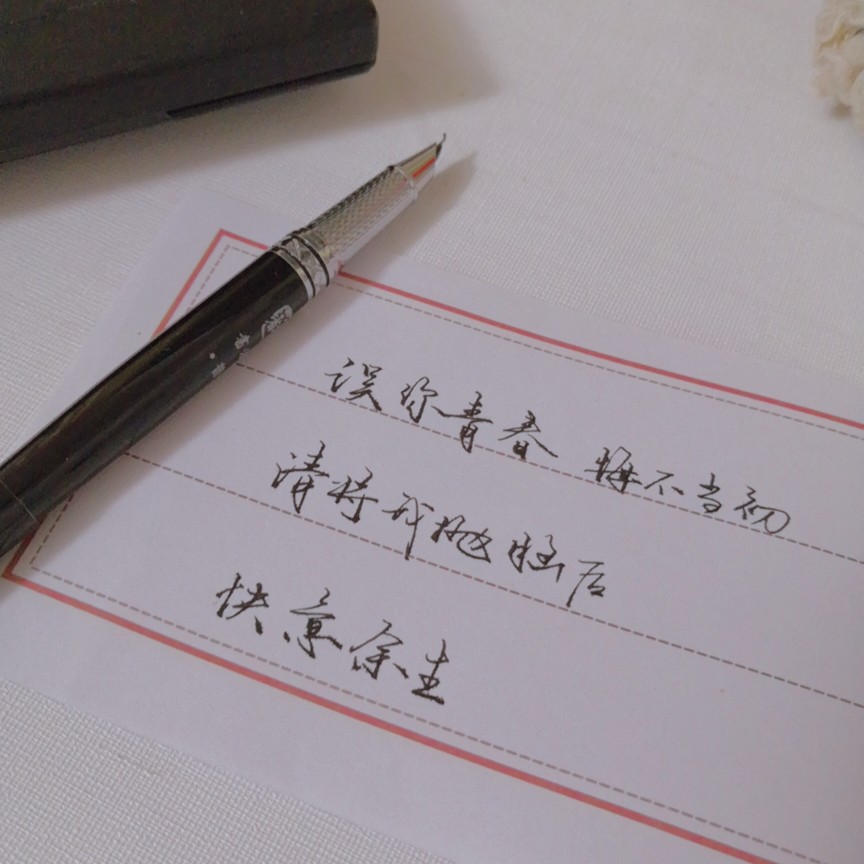 误你青春 悔不当初
清将我抛脑后
快意余生